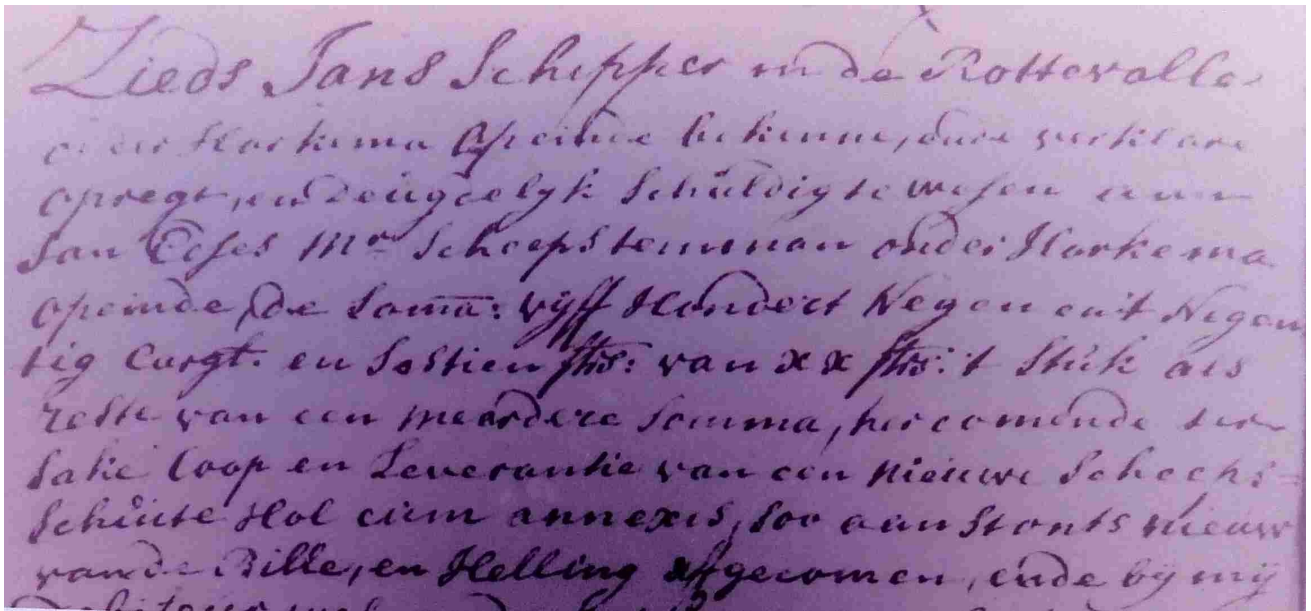 Lieds Jans Schipper in de Rottevalle
onder Harkema Opeinde bekenne, ende verklare
opregt, en deugdelyk Schuldig te wesen aan
Jan Edses Mr Scheepstemman onder Harkema
opeinde, de Soma: vyff Hondert Negen en't Negen
tig Cargl. en Sestien strs: van xx strs: 't Stuk als
reste van een meerdere Somma, hercomende ter
Sake Coop en Leverantie van een nieuwe Scheeps=
Schuite Hol cum annexis, soo aanstonts nieuw
van de Bille, en Helling afgecomen, ende by mij
Debiteur